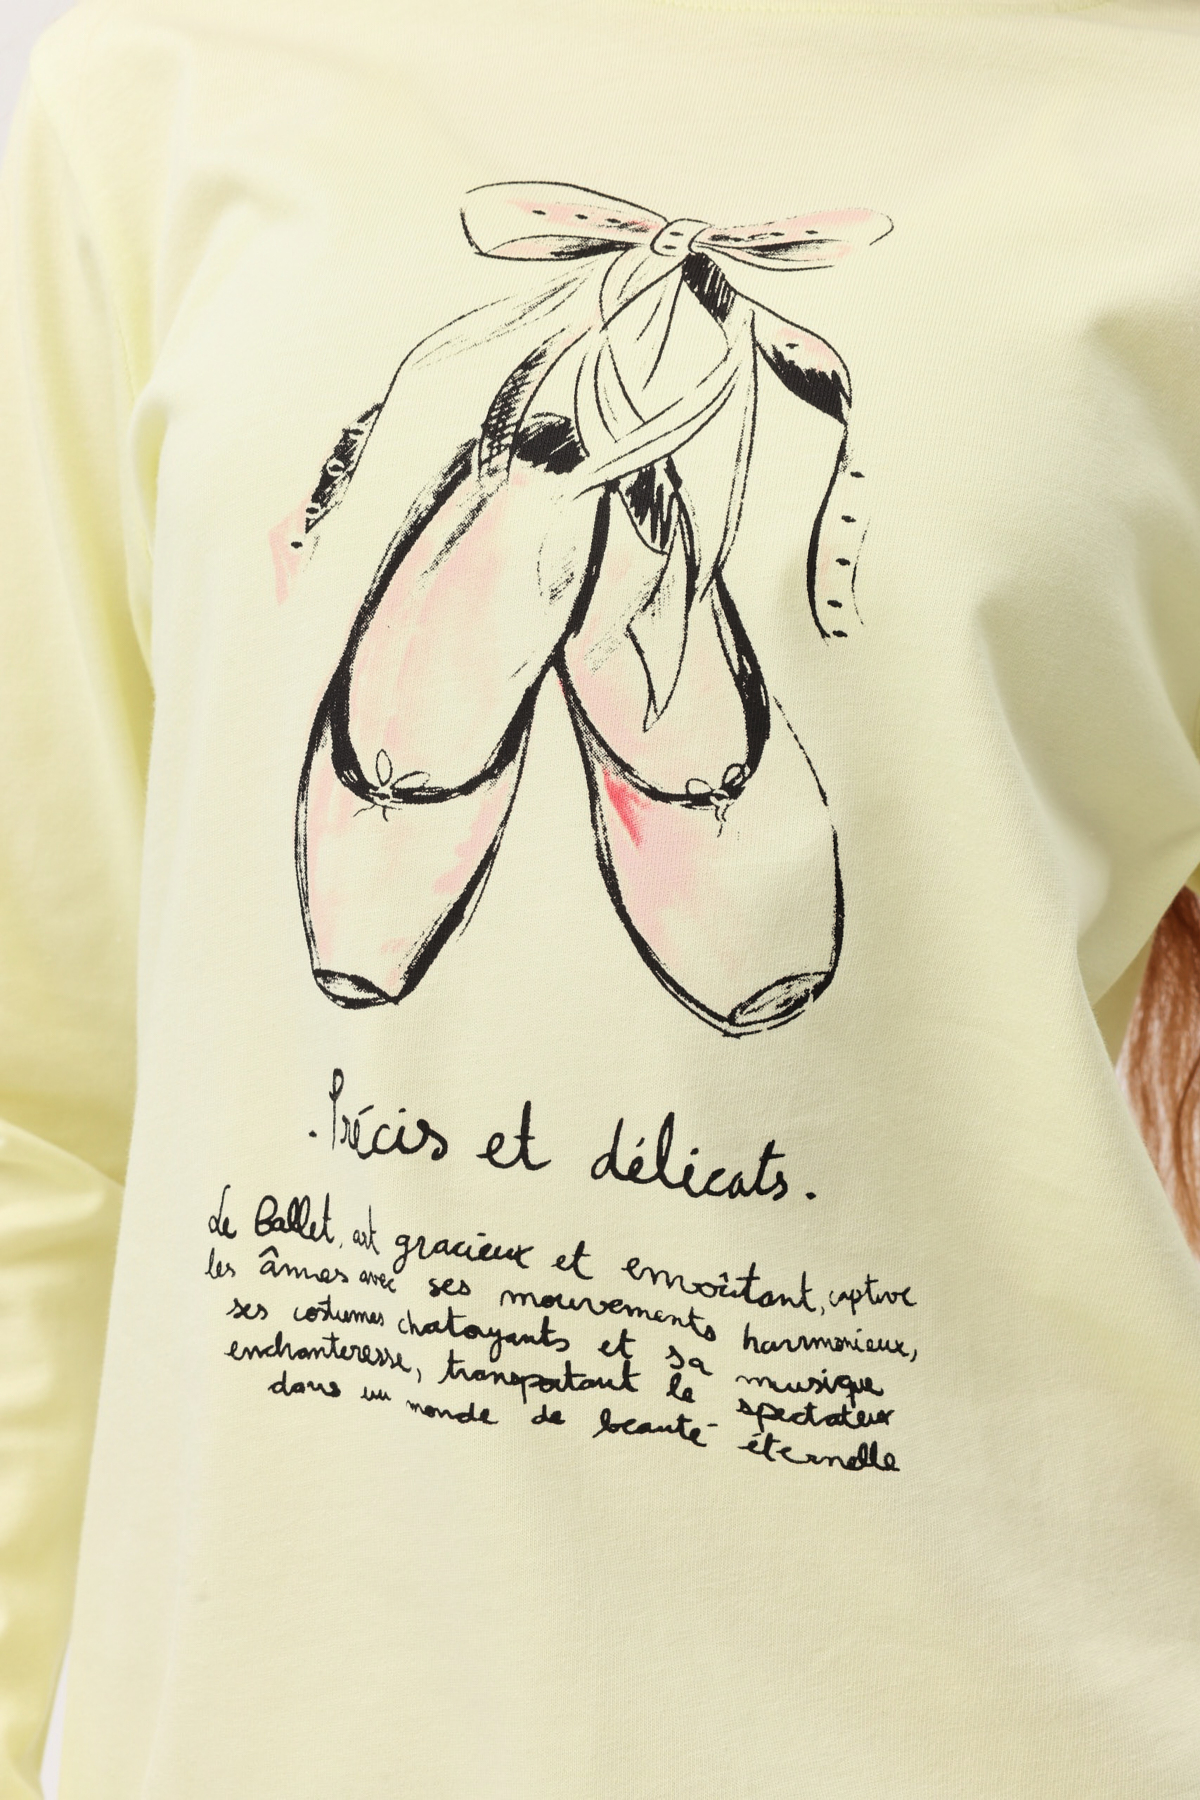 .Précis et délicats.
Le Ballet, art gracieux et envoûtant, captive
les âmes avec ses mouvements harmonieux,
ses costumes chatoyants et sa musique
enchanteresse, transportant le spectateur
dans un monde de beauté éternelle